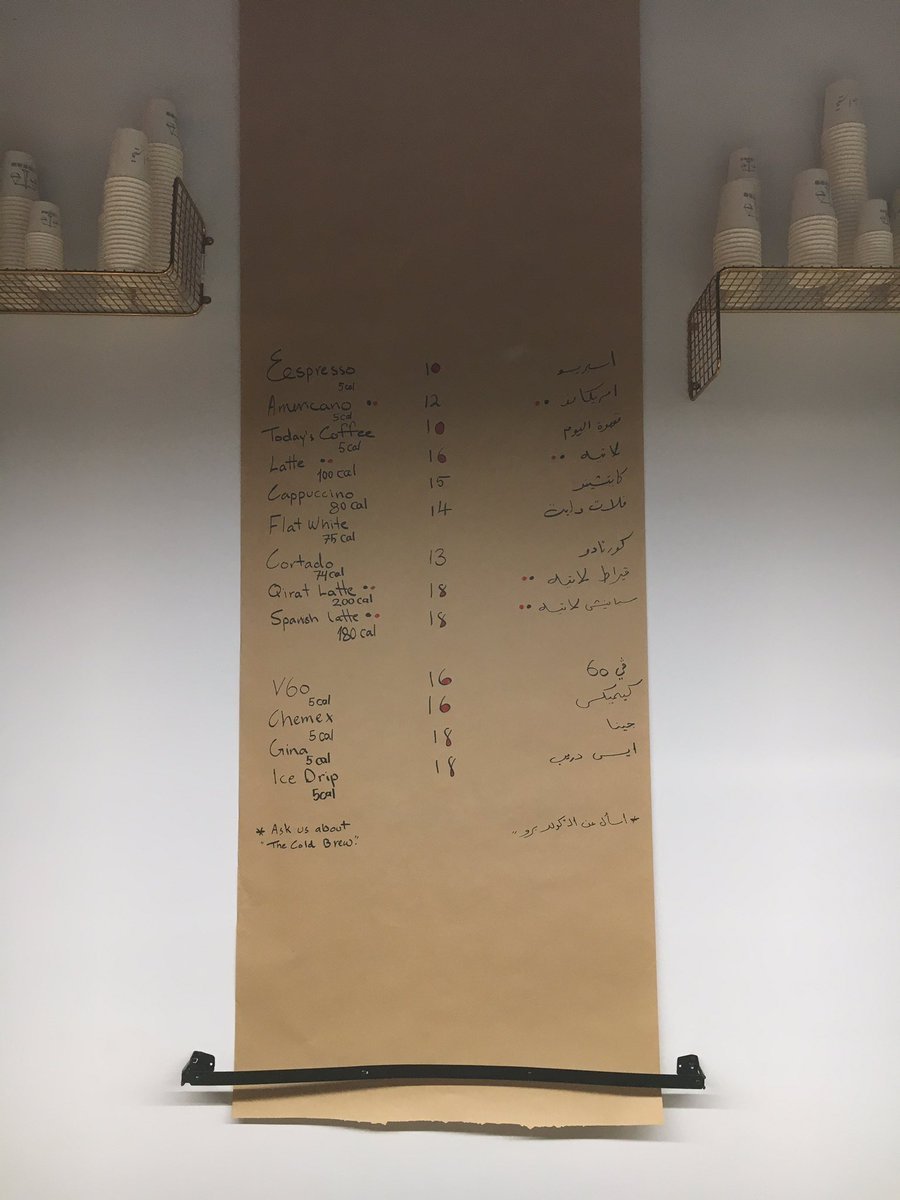 Eespresso 10 اسبريسو
5cal
Americano •• 12 امريكانو ••
5cal
Today's Coffee 10 قهوة اليوم
5cal
Latte •• 16 لاتيه ••
100cal
Cappuccino 15 كابتشينو
80cal
Flat White 14 فلات وايت
75cal
Cortado 13 كورتادو
74cal
Qirat Latte •• 18 قيراط لاتيه ••
200cal
Spansh latte •• 18 سبانيشي لاتيه ••
180cal
V60 16 ڤي 60
5cal
Chemex 16 كيميكس
5cal
Gina 18 جينا
5cal
Ice Drip 18 ايس درب
5cal
* Ask us about *اسأل عن الكولد برو"
"The Cold Brew."